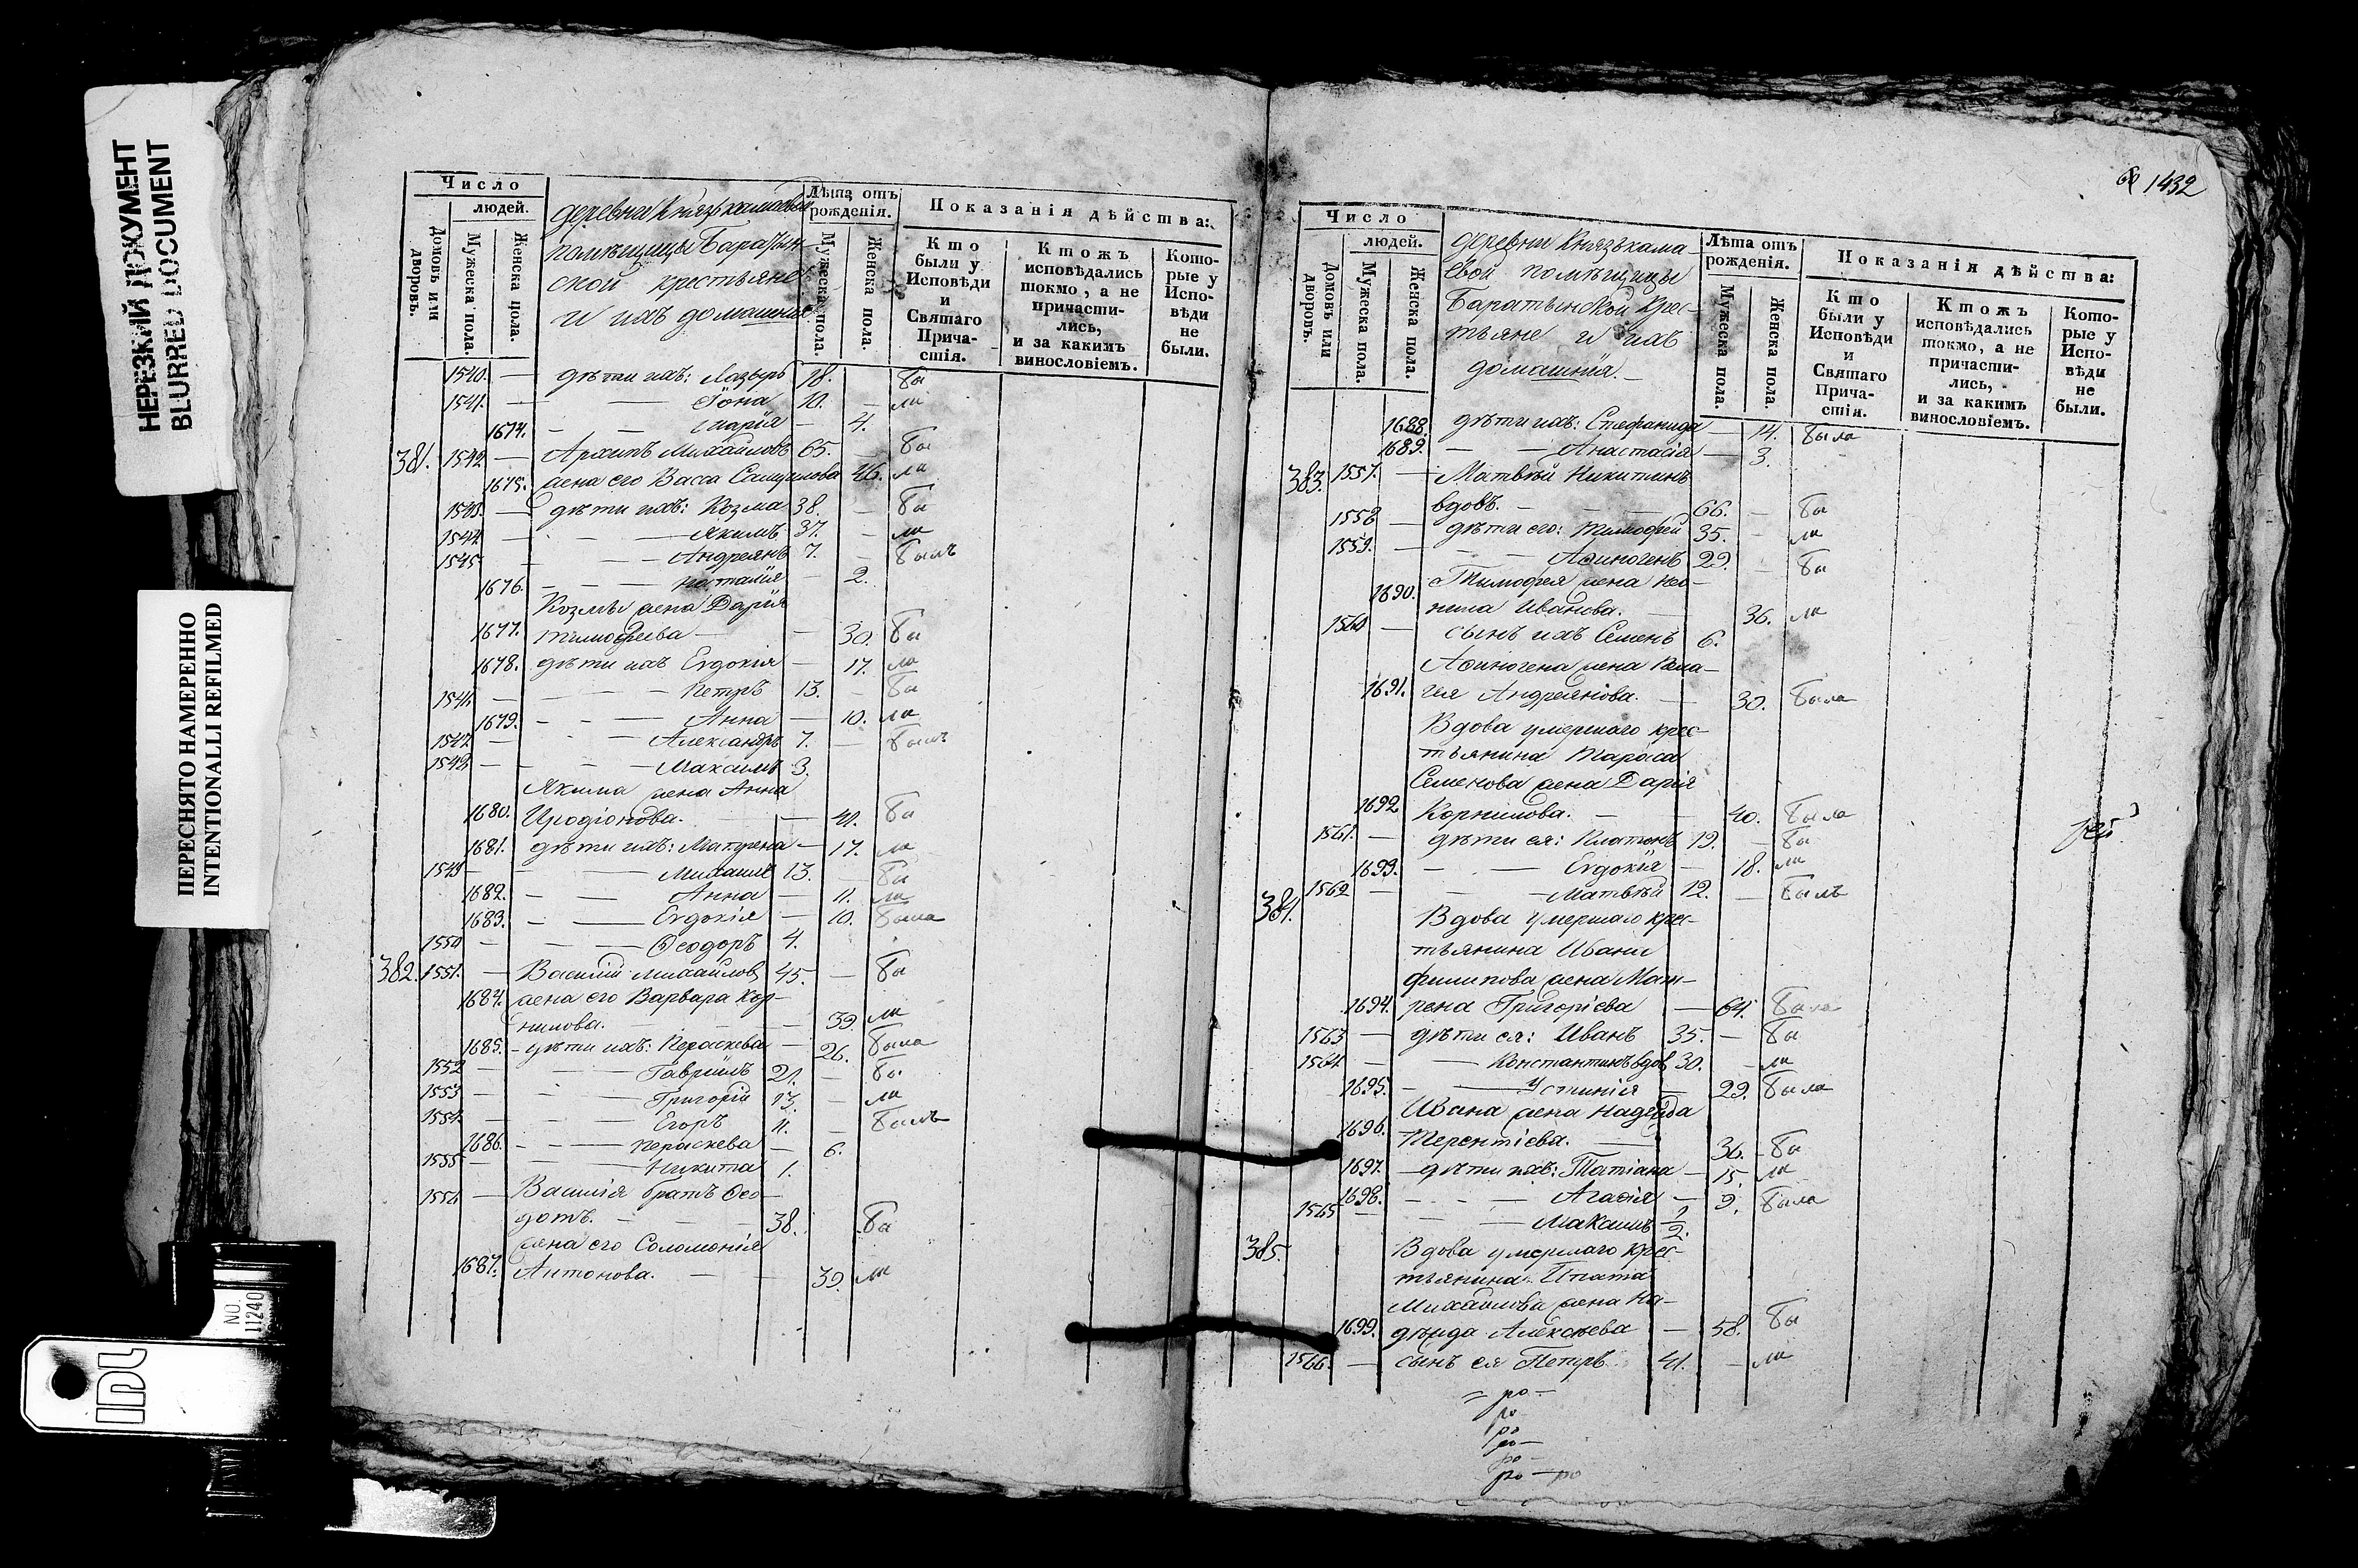 НЕРЕЗКИЙ ДОКУМЕНТ
BLURRED DOCUMENT
ПЕРЕСНЯТО НАМЕРЕННО
INTENTIONALLI REFILMED
NO.
11240
IDL
Число
людей.
Домовъ или дворовъ.
Мужеска пола.
Женска пола.
деревни Князькамаевой
помѣщицы Баратын-
ской крестьяне
и ихъ домашнія
Лѣта отъ рожденія.
Мужеска пола.
Женска пола.
Показанія дѣйства:
Кто были у Исповѣди и Святаго Прича-стія.
Ктожъ исповѣдались токмо, а не причасти-лись, и за какимъ винословіемъ.
Кото-рые у Испо-вѣди не были.
1540. — дѣти ихъ: Лазырь 18. бы
1541. — Іона 10. — ли
1674. — — Марія — 4.
381. 1542 — Архипъ Михайловъ 65. — бы
1675. жена его Васса Самуилова 46. ли
1543. — дѣти ихъ: Козма 38. — бы
1544 — Якимъ 37. — ли
1545 — Андреянъ 7. — былъ
1676. — Наталія — 2.
Козмы жена Дарія
1677. Тимофеева — — 30. бы
1678. дѣти ихъ Евдокія — 17. ли
1546 — Петръ 13. — бы
1679. — Анна — 10. ли
1547 — Александръ 7. — былъ
1548 — Максимъ 3.
Якима жена Анна
1680. Иродіонова. — 41. бы
1681. дѣти ихъ: Матрена — 17. ли
1549 — Михаилъ 13. — бы
1682. — — Анна — 11. ли
1683. — Евдокія — 10. была
1550 — Ѳеодоръ 4.
382. 1551. — Василій Михайлов 45. — бы
1684. жена его Варвара Кор-
нилова. — 39. ли
1685. — дѣти ихъ: Параскева — 26. была
1552 — Гавріилъ 21. — бы
1553 — Григорій 13. — ли
1554 — Егоръ 11. — былъ
1686. — Параскева — 6.
1555 — Никита 1.
1556 — Василія братъ Ѳео-
дотъ. — 38. бы
жена его Соломонія
1687. Антонова. — 39. ли
1432
Число
людей.
Домовъ или дворовъ.
Мужеска пола.
Женска пола.
деревни Князькама-
евой помѣщицы
Баратынской Крес-
тьяне и ихъ
домашнія. —
Лѣта отъ рожденія.
Мужеска пола.
Женска пола.
Показанія дѣйства:
Кто были у Исповѣди и Святаго Прича-стія.
Ктожъ исповѣдались токмо, а не причасти-лись, и за какимъ винословіемъ.
Кото-рые у Испо-вѣди не были.
1688. дѣти ихъ: Стефанида — 14. была
1689. — — Анастасія — 3.
383. 1557. — Матвѣй Никитинъ
вдовъ. — 66. — бы
1558 — дѣти его: Тимофей 35. — ли
1559. — Аѳиногенъ 29. — бы
Тимофея жена Нео-
1690. нила Иванова. — 36. ли
1560 — сынъ ихъ Семенъ 6.
Аѳиногена жена Пела-
1691. гея Андреянова. — 30. была
Вдова умершаго крес-
тьянина Тараса
Семенова жена Дарія
1692 Корнилова. — 40. была
1561. — дѣти ея: Платонъ 19. — бы
1693. — Евдокія — 18. ли
1562 — Матвѣй 12. — былъ
384. Вдова умершаго крес-
тьянина Ивана
Филипова жена Мат-
1694. рена Григоріева — 64. была
1563 — дѣти ея: Иванъ 35. — бы
1564 — Константинъ вдов 30. — ли
1695. — Устинія — 29. была
Ивана жена Надежда
1696. Терентіева. — 36. бы
1697. — дѣти ихъ: Татіана — 15. ли
1698. — Агаѳія — 9. была
1565 — Максимъ 1/2.
385. Вдова умершаго крес-
тьянина Ипата
Михайлова жена На-
1699. дѣжда Алексѣева — 58. бы
1566. — сынъ ея Петръ 41. — ли
ро —
ро
ро
ро —
ро —
ро — ро